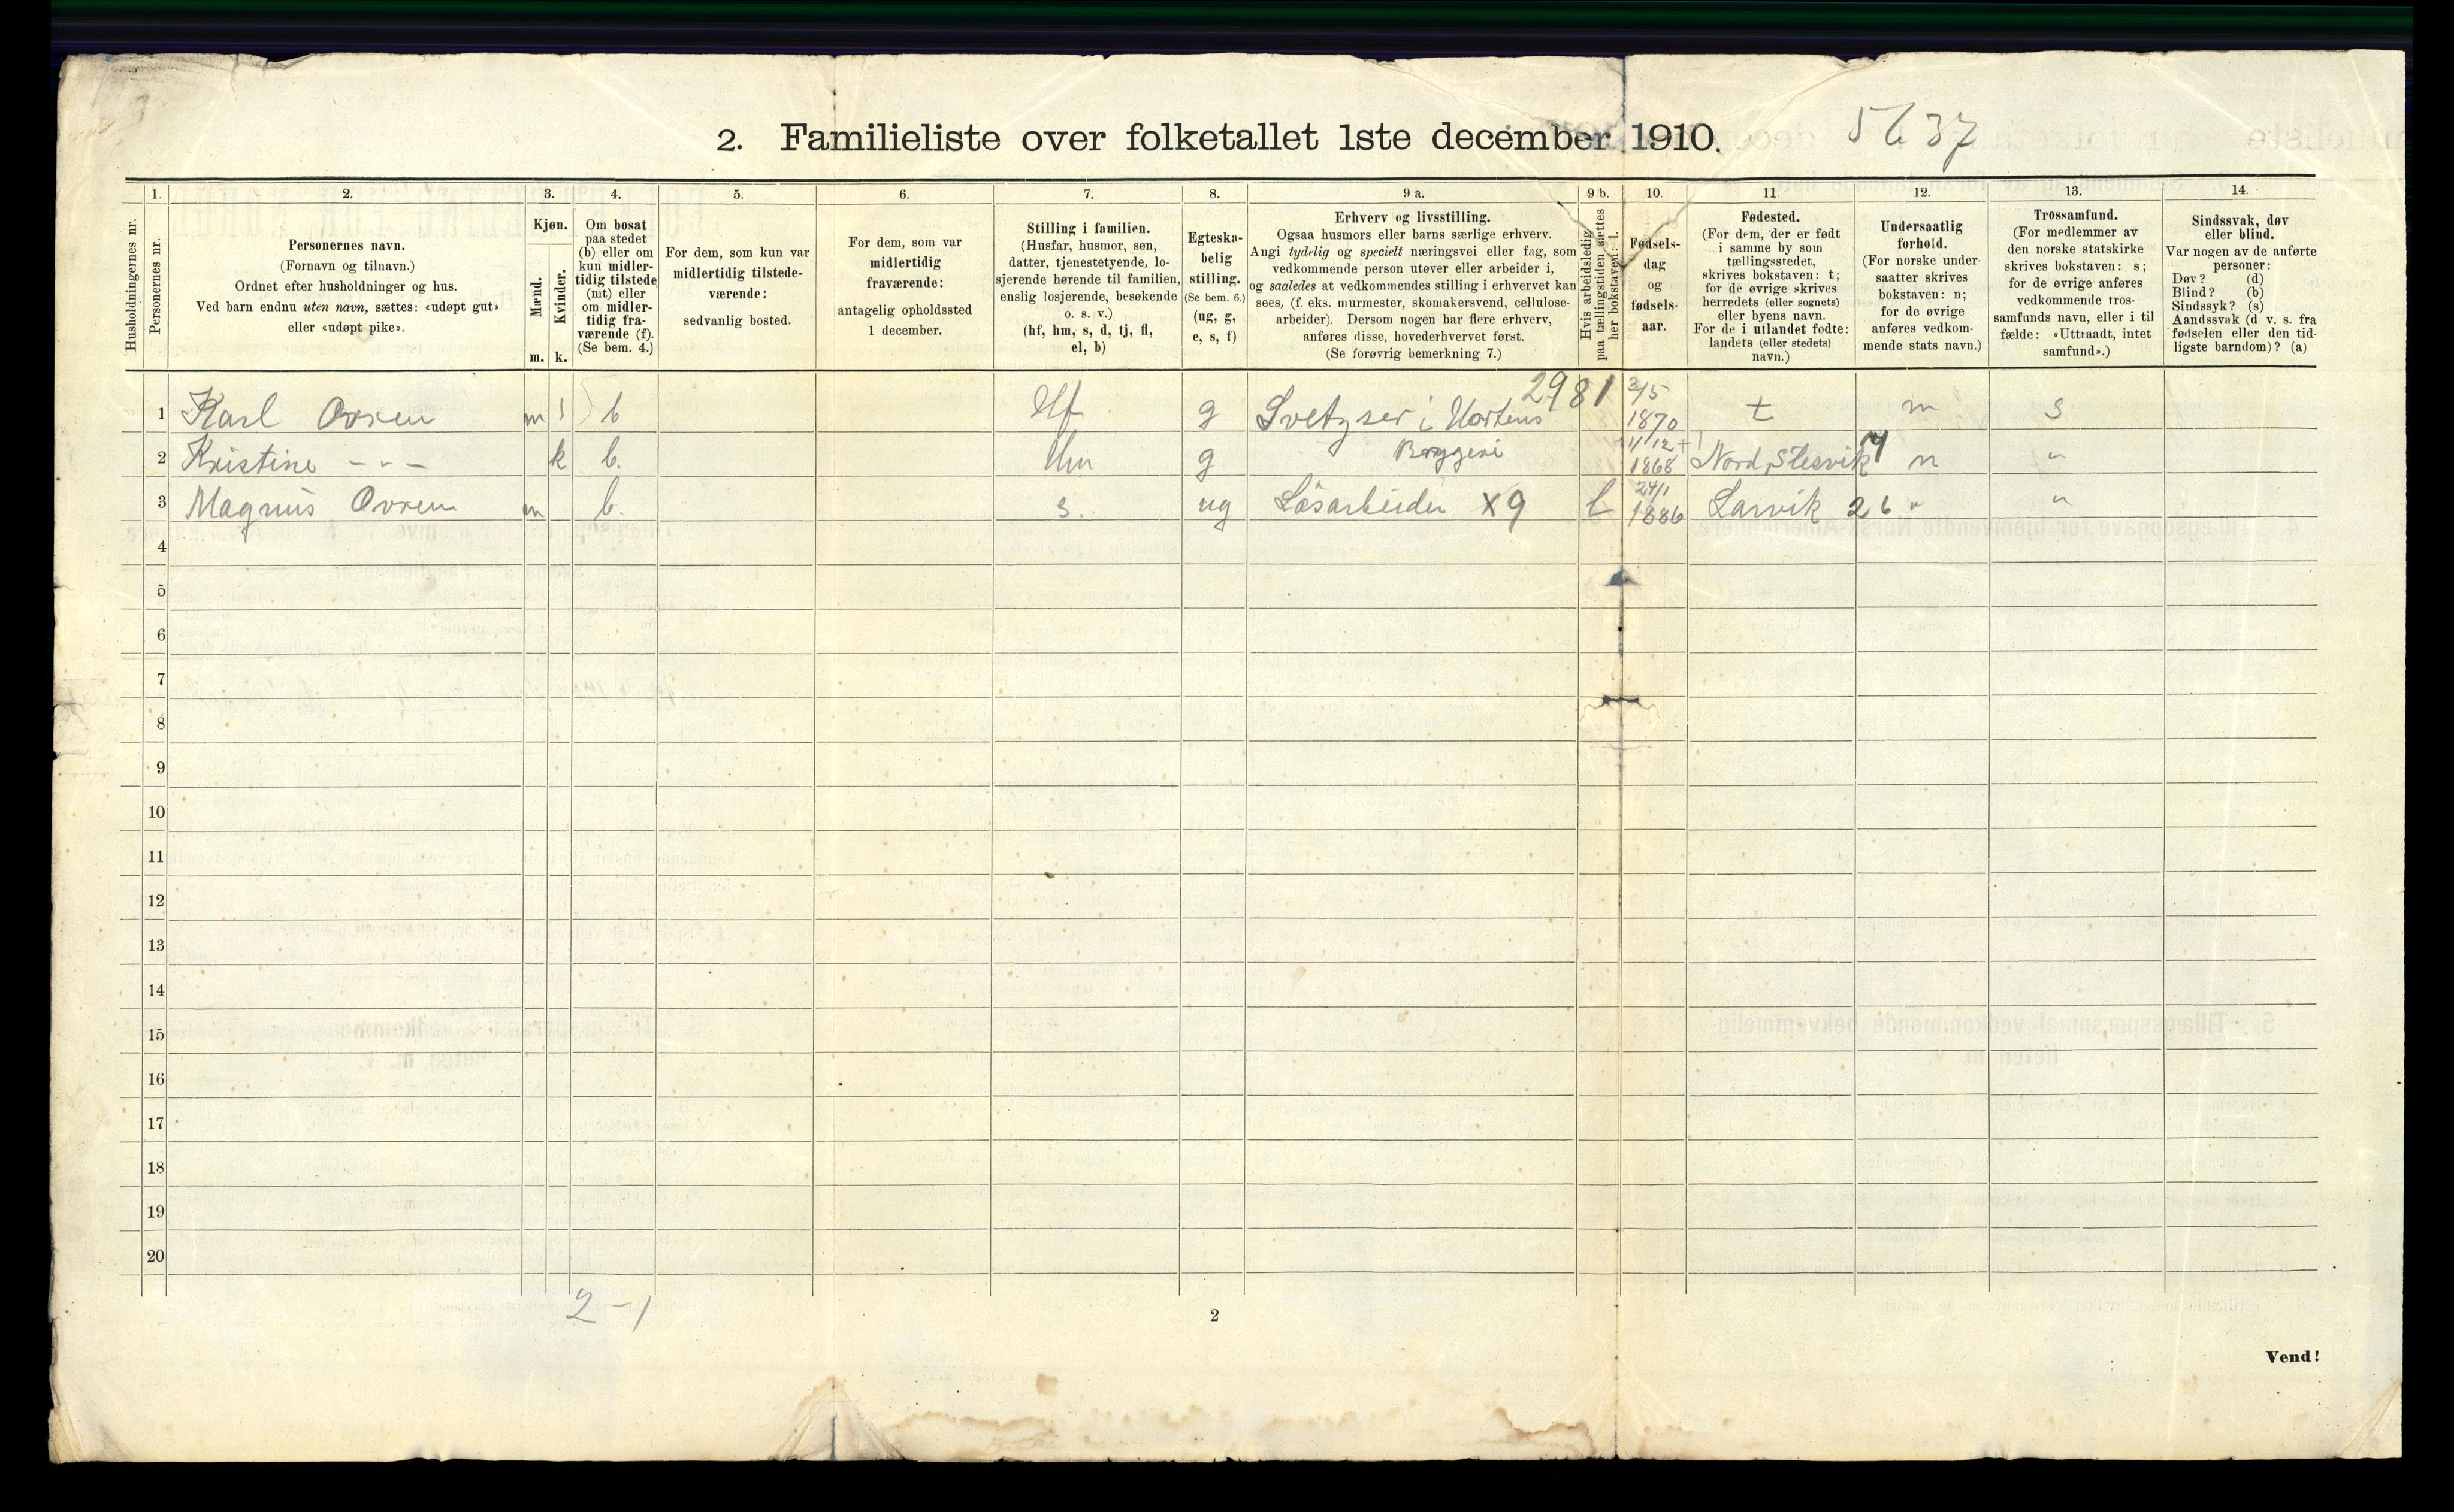 2. Familieliste over folketallet 1ste december 1910.
5637
1. 2. 3. 4. 5. 6. 7. 8. 9 a. 9 b. 10. 11. 12. 13. 14.
Husholdningernes nr.
Personernes nr.
Personernes navn.
(Fornavn og tilnavn.)
Ordnet efter husholdninger og hus.
Ved barn endnu uten navn, sættes: «udøpt gut»
eller «udøpt pike».
Kjøn.
Mænd.
Kvinder.
m. k.
Om bosat
paa stedet
(b) eller om
kun midler-
tidig tilstede
(mt) eller
om midler-
tidig fra-
værende (f).
(Se bem. 4.)
For dem, som kun var
midlertidig tilstede-
værende:
sedvanlig bosted.
For dem, som var
midlertidig
fraværende:
antagelig opholdssted
1 december.
Stilling i familien.
(Husfar, husmor, søn,
datter, tjenestetyende, lo-
sjerende hørende til familien,
enslig losjerende, besøkende
o. s. v.)
(hf, hm, s, d, tj, fl,
el, b)
Egteska-
belig
stilling.
(Se bem. 6.)
(ug, g,
e, s, f)
Erhverv og livsstilling.
Ogsaa husmors eller barns særlige erhverv.
Angi tydelig og specielt næringsvei eller fag, som
vedkommende person utøver eller arbeider i,
og saaledes at vedkommendes stilling i erhvervet kan
sees, (f. eks. murmester, skomakersvend, cellulose-
arbeider). Dersom nogen har flere erhverv,
anføres disse, hovederhvervet først.
(Se forøvrig bemerkning 7.)
Hvis arbeidsledig
paa tællingstiden sættes
her bokstaven: l.
Fødsels-
dag
og
fødsels-
aar.
Fødested.
(For dem, der er født
i samme by som
tællingsstedet,
skrives bokstaven: t;
for de øvrige skrives
herredets (eller sognets)
eller byens navn.
For de i utlandet fødte:
landets (eller stedets)
navn.)
Undersaatlig
forhold.
(For norske under-
saatter skrives
bokstaven: n;
for de øvrige
anføres vedkom-
mende stats navn.)
Trossamfund.
(For medlemmer av
den norske statskirke
skrives bokstaven: s;
for de øvrige anføres
vedkommende tros-
samfunds navn, eller i til
fælde: «Uttraadt, intet
samfund».)
Sindssvak, døv
eller blind.
Var nogen av de anførte
personer:
Døv? (d)
Blind? (b)
Sindssyk? (s)
Aandssvak (d v. s. fra
fødselen eller den tid-
ligste barndom)? (a)
2981
1 Karl Ovren m b Hf g i Hortens 3/5 1870 t n s
2 Kristine - - - k b. Hm g Bryggeri 11/12 1868 Nord Slesvik n "
3 Magnus Ovren m b. s. ug Løsarbeider X9 l 24/1 1886 Larvik 26 " "
4
5
6
7
8
9
10
11
12
13
14
15
16
17
18
19
20
2 - 1
2
Vend!